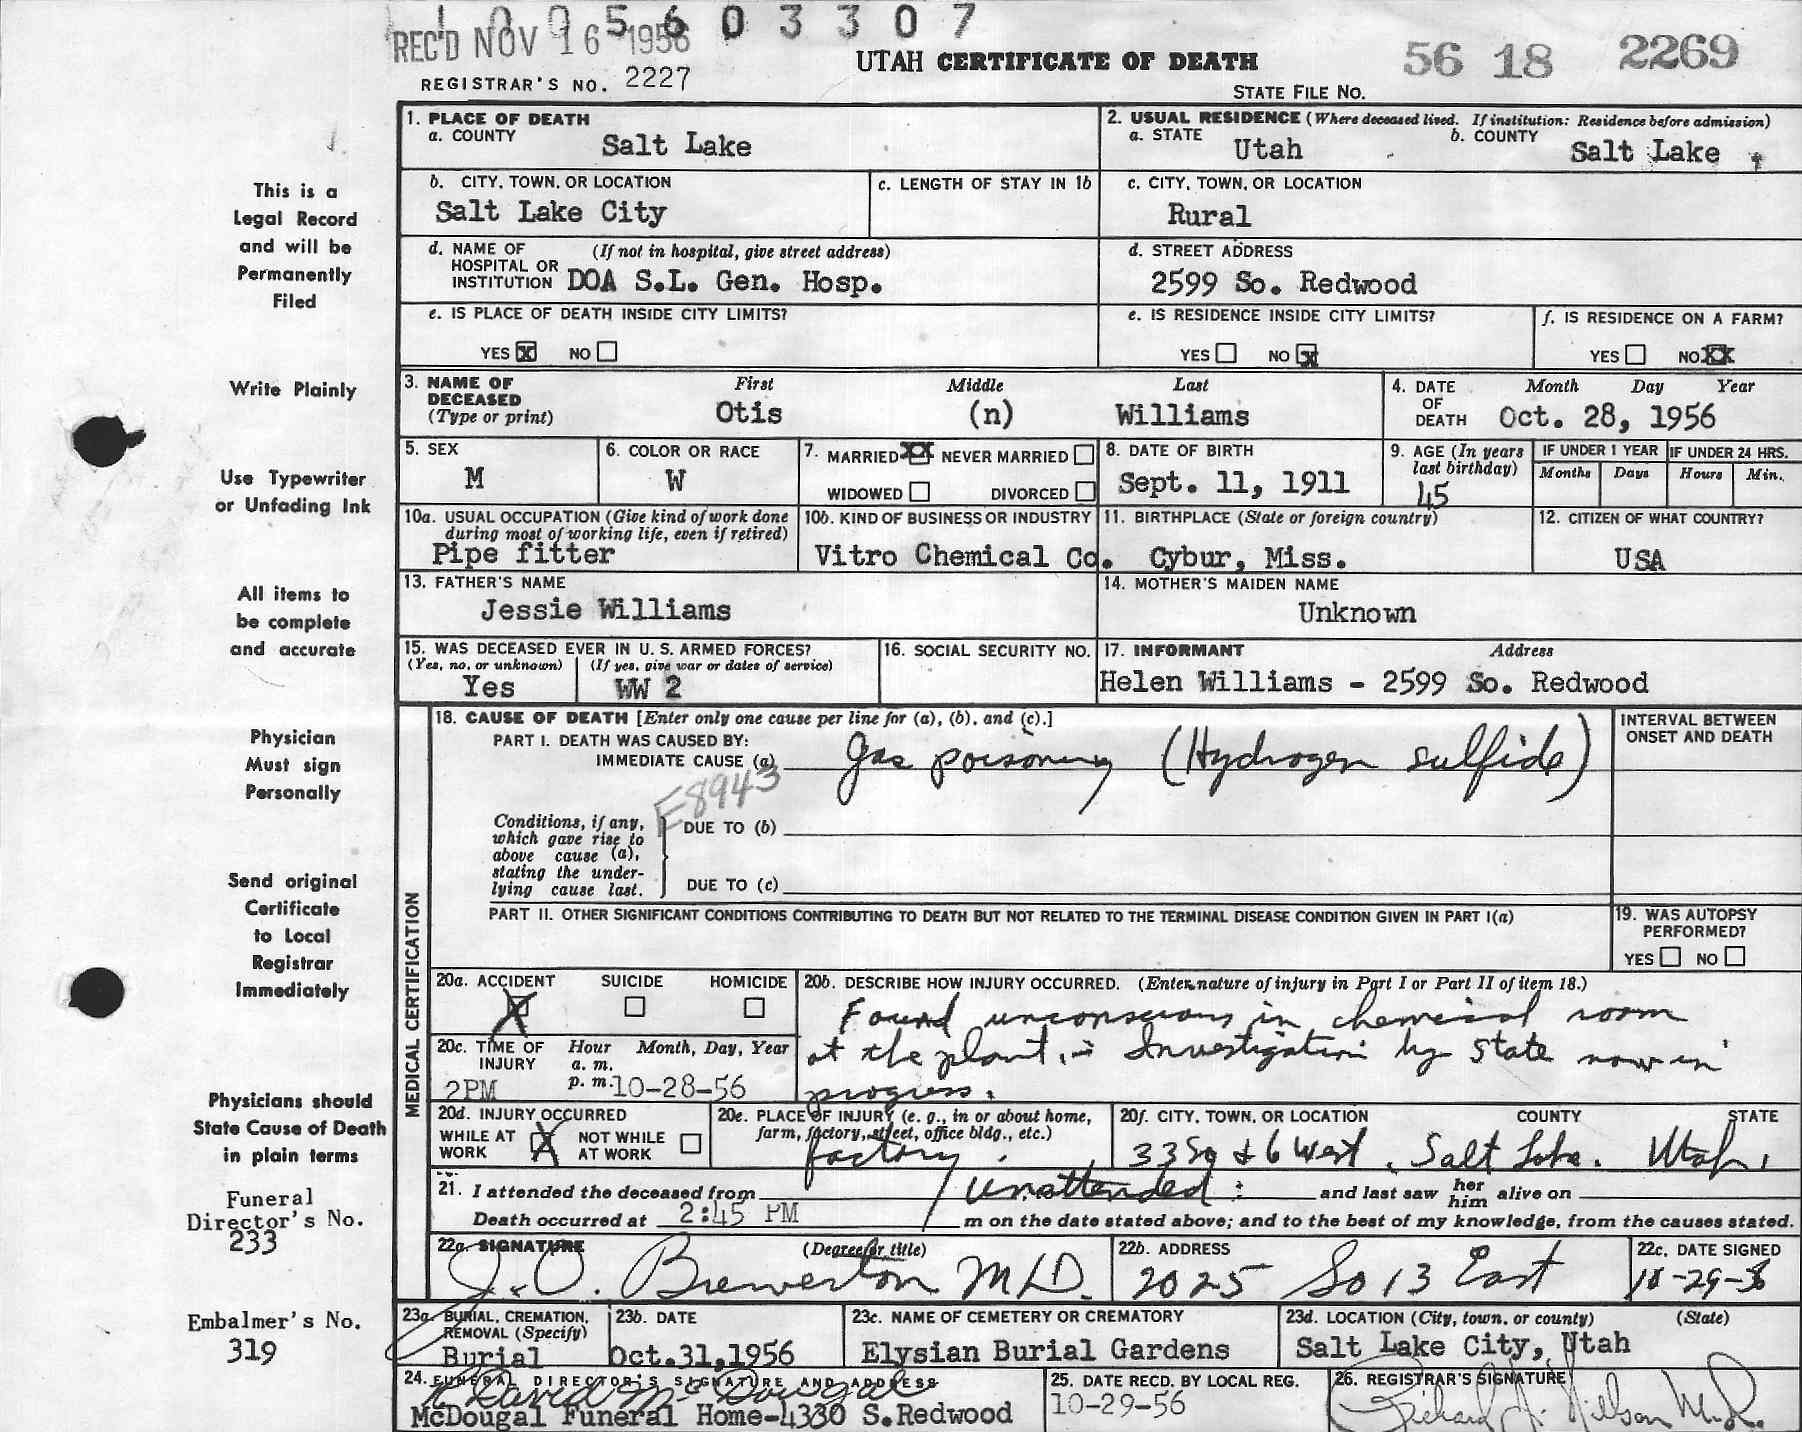 1005603307
REC'D NOV 16 1956
UTAH CERTIFICATE OF DEATH
56 18 2269
REGISTRAR'S NO. 2227
STATE FILE NO.
1. PLACE OF DEATH
a. COUNTY
Salt Lake
2. USUAL RESIDENCE (Where deceased lived. If institution: Residence before admission)
a. STATE
Utah
b. COUNTY
Salt Lake
b. CITY, TOWN, OR LOCATION
Salt Lake City
c. LENGTH OF STAY IN 1b
c. CITY, TOWN, OR LOCATION
Rural
d. NAME OF HOSPITAL OR INSTITUTION
(If not in hospital, give street address)
DOA S.L. Gen. Hosp.
d. STREET ADDRESS
2599 So. Redwood
e. IS PLACE OF DEATH INSIDE CITY LIMITS?
YES X NO
e. IS RESIDENCE INSIDE CITY LIMITS?
YES NO X
f. IS RESIDENCE ON A FARM?
YES NO XX
3. NAME OF DECEASED
(Type or print)
First Middle Last
Otis (n) Williams
4. DATE OF DEATH
Month Day Year
Oct. 28, 1956
5. SEX
M
6. COLOR OR RACE
W
7. MARRIED XX NEVER MARRIED
WIDOWED DIVORCED
8. DATE OF BIRTH
Sept. 11, 1911
9. AGE (In years last birthday)
45
IF UNDER 1 YEAR
Months Days
IF UNDER 24 HRS.
Hours Min.
10a. USUAL OCCUPATION (Give kind of work done during most of working life, even if retired)
Pipe fitter
10b. KIND OF BUSINESS OR INDUSTRY
Vitro Chemical Co.
11. BIRTHPLACE (State or foreign country)
Cybur, Miss.
12. CITIZEN OF WHAT COUNTRY?
USA
13. FATHER'S NAME
Jessie Williams
14. MOTHER'S MAIDEN NAME
Unknown
15. WAS DECEASED EVER IN U. S. ARMED FORCES?
(Yes, no, or unknown) (If yes, give war or dates of service)
Yes WW 2
16. SOCIAL SECURITY NO.
17. INFORMANT Address
Helen Williams - 2599 So. Redwood
MEDICAL CERTIFICATION
18. CAUSE OF DEATH [Enter only one cause per line for (a), (b), and (c).]
PART I. DEATH WAS CAUSED BY:
IMMEDIATE CAUSE (a) Gas poisoning (Hydrogen sulfide)
E8943
Conditions, if any, which gave rise to above cause (a), stating the underlying cause last.
DUE TO (b)
DUE TO (c)
INTERVAL BETWEEN ONSET AND DEATH
PART II. OTHER SIGNIFICANT CONDITIONS CONTRIBUTING TO DEATH BUT NOT RELATED TO THE TERMINAL DISEASE CONDITION GIVEN IN PART I(a)
19. WAS AUTOPSY PERFORMED?
YES NO
20a. ACCIDENT SUICIDE HOMICIDE
X
20b. DESCRIBE HOW INJURY OCCURRED. (Enter nature of injury in Part I or Part II of item 18.)
Found unconscious in chemical room
at the plant. - Investigation by State now in
progress.
20c. TIME OF INJURY
Hour Month, Day, Year
a. m.
p. m.
2PM 10-28-56
20d. INJURY OCCURRED
WHILE AT WORK X NOT WHILE AT WORK
20e. PLACE OF INJURY (e. g., in or about home, farm, factory, street, office bldg., etc.)
factory.
20f. CITY, TOWN, OR LOCATION COUNTY STATE
33 So & 6 West, Salt Lake. Utah.
21. I attended the deceased from Unattended and last saw her him alive on
Death occurred at 2:45 PM m on the date stated above; and to the best of my knowledge, from the causes stated.
22a. SIGNATURE (Degree or title)
J. O. Brewerton M.D.
22b. ADDRESS
2025 So 13 East
22c. DATE SIGNED
23a. BURIAL, CREMATION, REMOVAL (Specify)
Burial
23b. DATE
Oct.31,1956
23c. NAME OF CEMETERY OR CREMATORY
Elysian Burial Gardens
23d. LOCATION (City, town, or county) (State)
Salt Lake City, Utah
24. FUNERAL DIRECTOR'S SIGNATURE AND ADDRESS
David McDougal
McDougal Funeral Home-4330 S.Redwood
25. DATE RECD. BY LOCAL REG.
10-29-56
26. REGISTRAR'S SIGNATURE
Richard J. Nilson M.D.
This is a
Legal Record
and will be
Permanently
Filed
Write Plainly
Use Typewriter
or Unfading Ink
All items to
be complete
and accurate
Physician
Must sign
Personally
Send original
Certificate
to Local
Registrar
Immediately
Physicians should
State Cause of Death
in plain terms
Funeral
Director's No.
233
Embalmer's No.
319